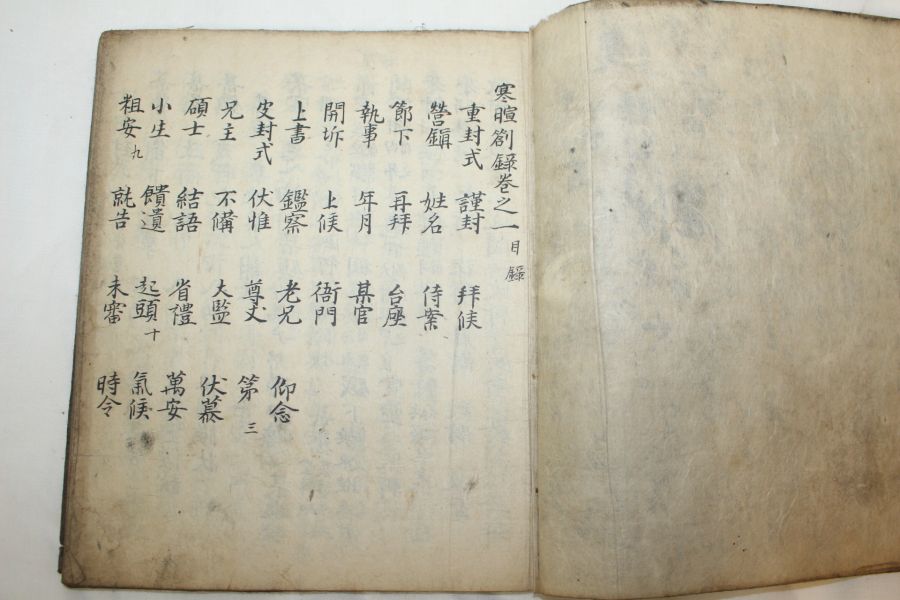 寒暄箚錄卷之一 目錄
重封式 謹封 拜候
營鎭 姓名 侍案
節下 再拜 台座
執事 年月 某官
開坼 上候 衙門
上書 鑑察 老兄 仰念
皮封式 伏惟 尊丈 第三
兄主 不備 大監 伏慕
碩士 結語 省禮 萬安
小生 饋遺 起頭十 氣候
粗安九 就告 未審 時令